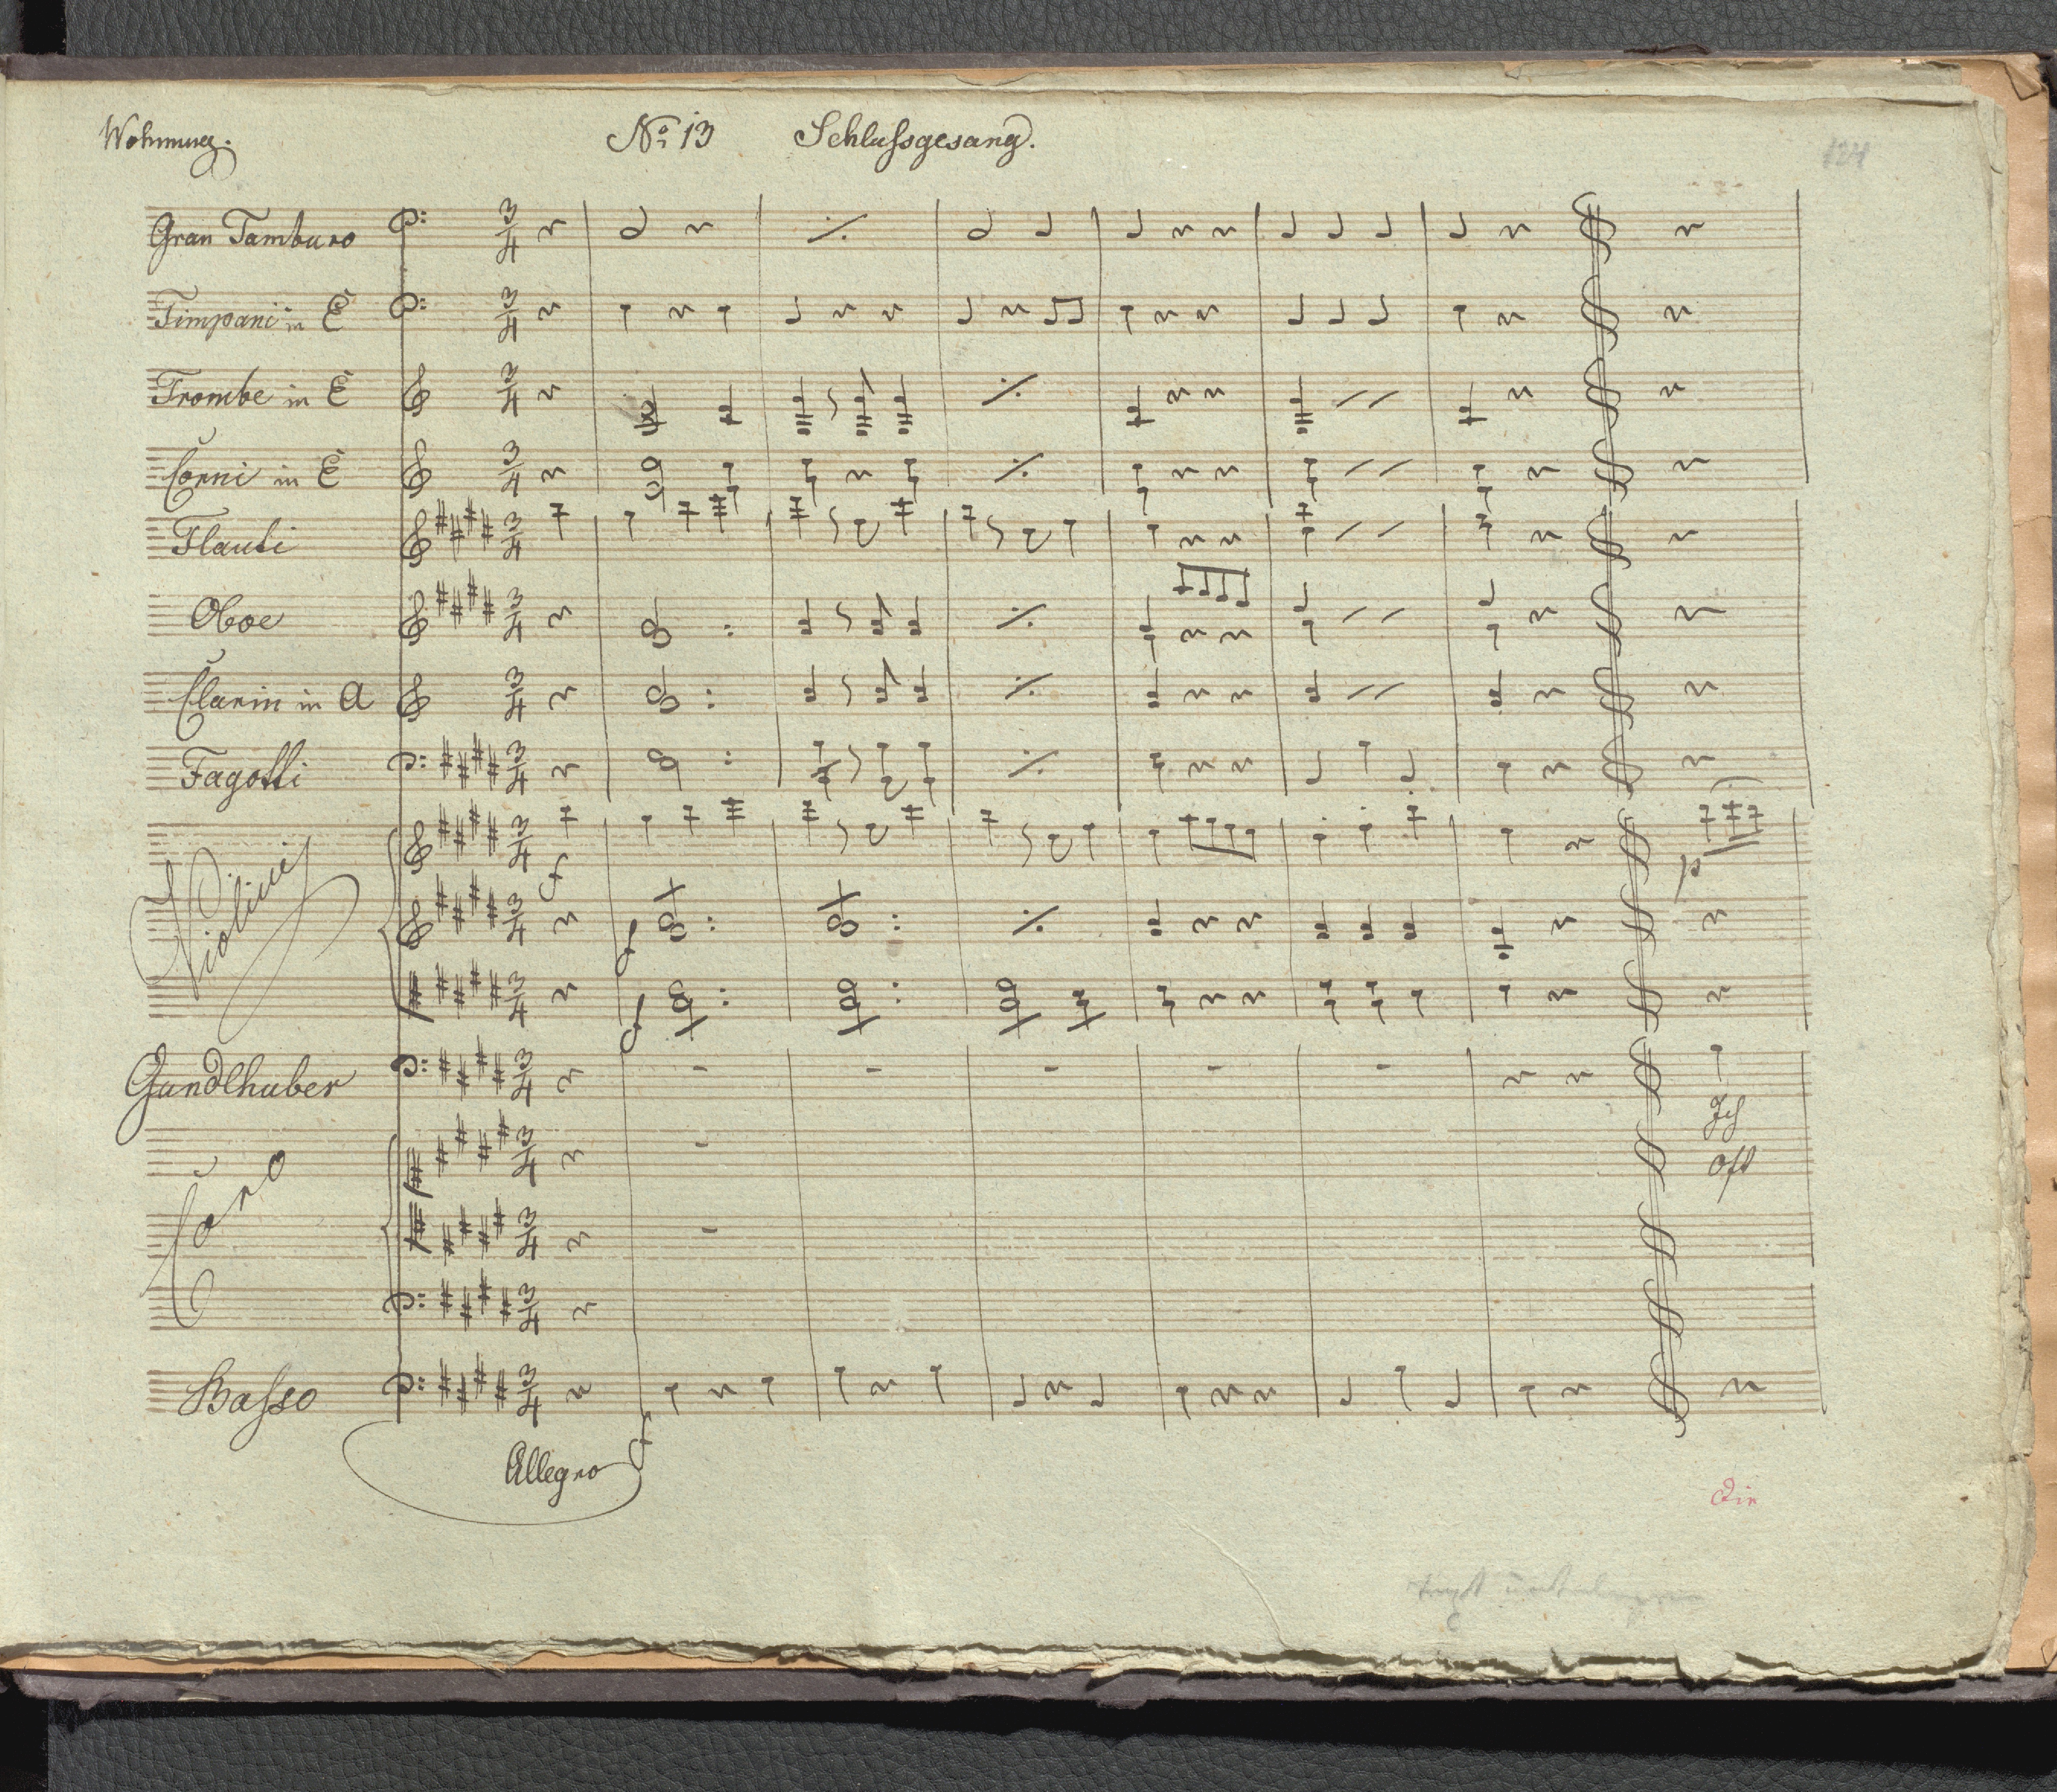 Wohnung. No. 13 Schlußgesang. 124
Gran Tamburo
Timpani in E
Trombe in E
Corni in E
Flauti
Oboe
Clarin in A
Fagotti
Violini
f
p
f
f
Gandlhuber
Ich
oft
Coro
Basso
f
Allegro
Die